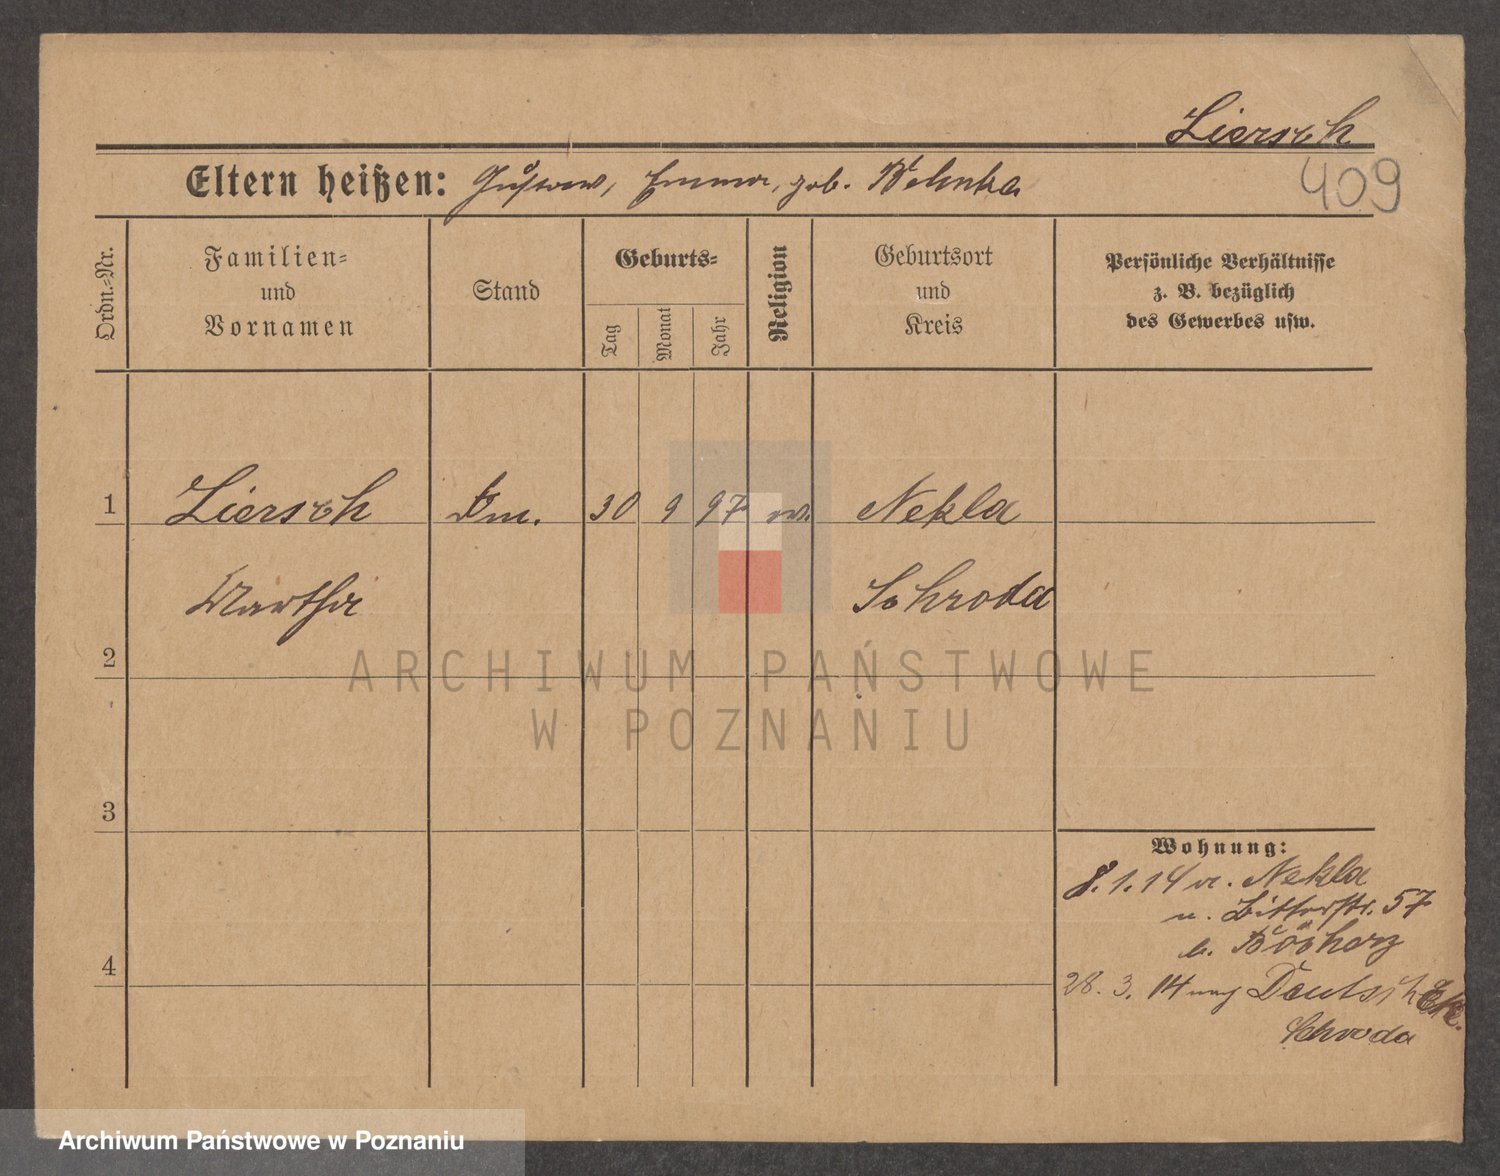 Liersch
409
Eltern heißen: Gustav, Emma, geb.
Ordn.-Nr.
Familien-
und
Vornamen
Stand
Geburts-
Tag
Monat
Jahr
Religion
Geburtsort
und
Kreis
Persönliche Verhältnisse
z. B. bezüglich
des Gewerbes usw.
1 Liersch 30 9 97 Nekla
Martha Schroda
2
3
4
Wohnung:
8. 1. 14 v. Nekla
n. Ritterstr. 57
b.
28. 3. 14 nach Deutsch
Schroda
ARCHIWUM PAŃSTWOWE
W POZNANIU
Archiwum Państwowe w Poznaniu